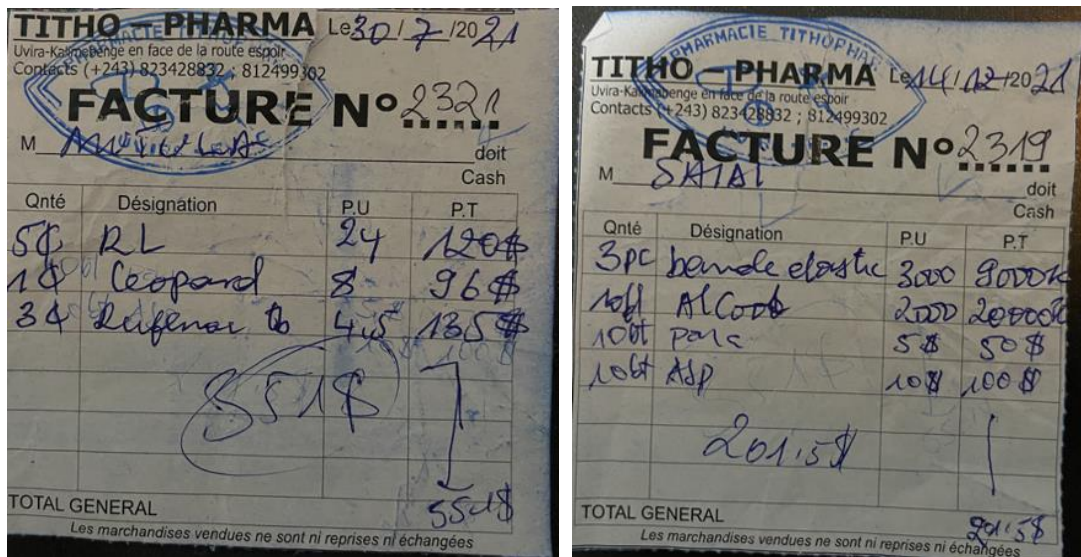 TITHO – PHARMA Le 30/7/2021
Uvira-Kalimabenge en face de la route espoir
Contacts (+243) 823428832 ; 812499302
FACTURE N° 2321
M doit
Cash
Qnté Désignation P.U P.T
5¢ RL 24 120$
1¢ Leopard 8 96$
3¢ 4,5 135$
551$
TOTAL GENERAL 551$
Les marchandises vendues ne sont ni reprises ni échangées
PHARMACIE TITHOPHAR
TITHO – PHARMA Le 14/12/2021
Uvira-Kalimabenge en face de la route espoir
Contacts (+243) 823428832 ; 812499302
FACTURE N° 2319
M doit
Cash
Qnté Désignation P.U P.T
3pc bande elastic 3000 9000
10 Alcool 2000 20000
10bt para 5$ 50$
10bt ASP 10$ 100$
201.5$
TOTAL GENERAL 201.5$
Les marchandises vendues ne sont ni reprises ni échangées